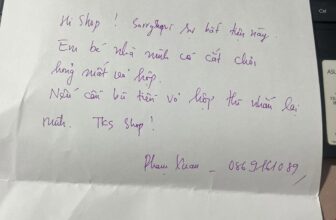 Hi Shop ! Sorry vì sự bất tiện này.
Em bé nhà mình có cắt chơi
hỏng mất vỏ hộp.
Nếu cần bù tiền vỏ hộp thì nhắn lại
mình. Tks shop !
Phạm Xuan _ 0869161089